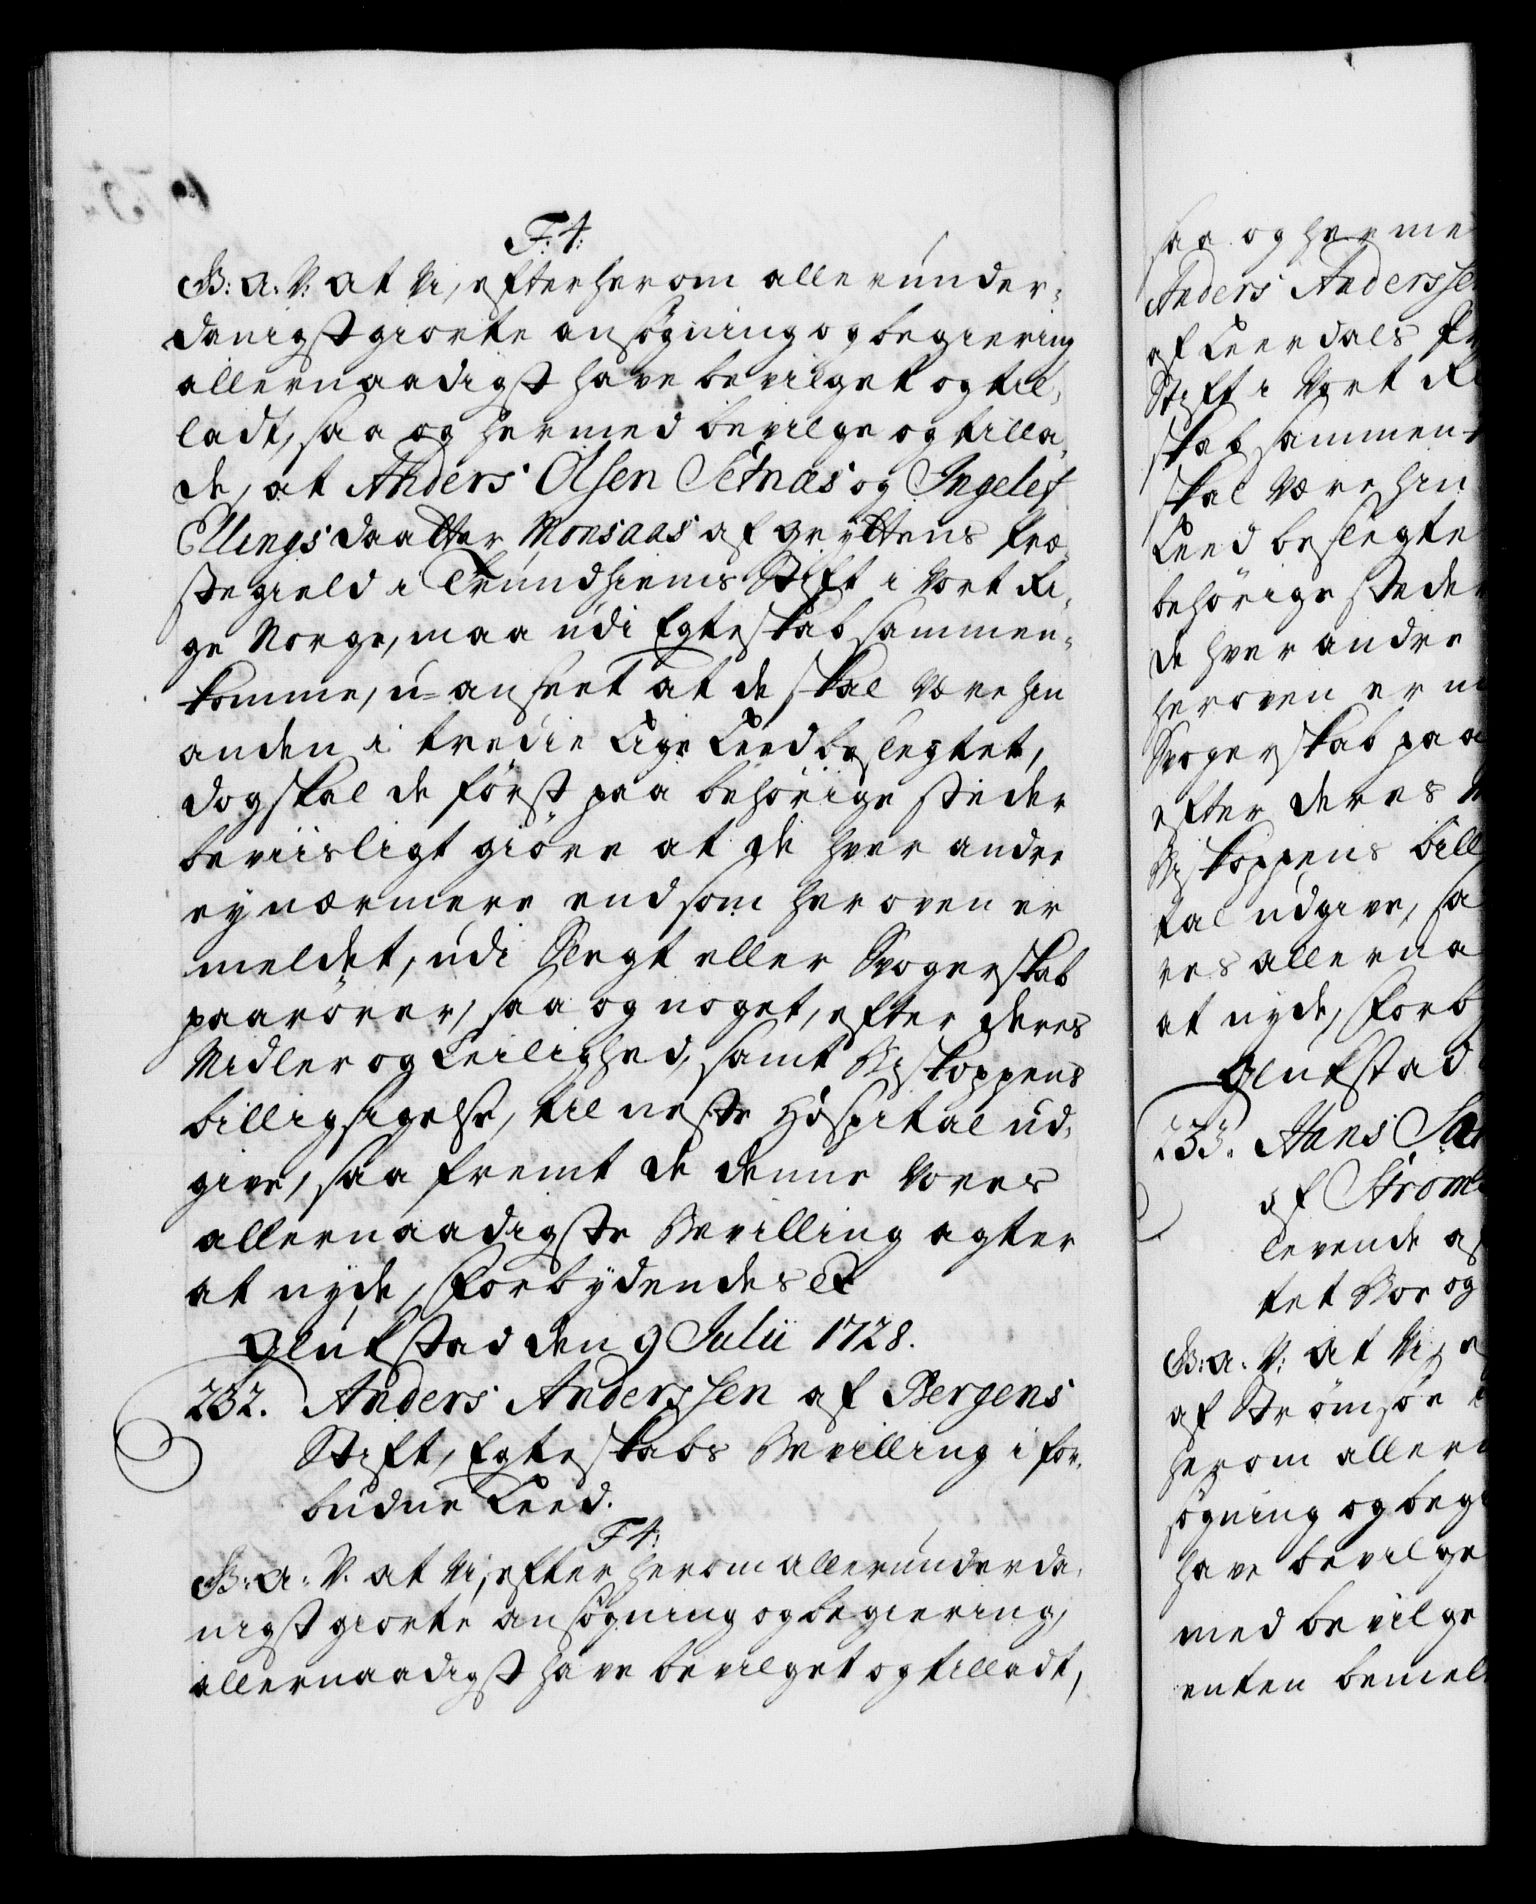 F:4:
G: A: V: at Vi, efter herom allerunder-
danigst giorte ansögning og begiering
allernaadigst have bevilget og til-
ladt, saa og hermed bevilge og tilla-
de, at Anders Olsen Setnæs og Ingelef
Ellings daatter Monsaas af Gryttens Præ-
stegield i Trundhiems Stift i Vort Ri-
ge Norge, maa udi Egteskab sammen-
komme, u-anseet at de skal være hin
anden i tredie Lige Leed beslegtet,
dog skal de först paa behörige steder
beviisligt giöre at de hver andre
ey nærmere end som her oven er
meldet, udi Slegt eller Svogerskab
paarörer, saa og noget, efter deres
Midler og Leilighed, samt Biskoppens
billigsigelse, til neste Hospital ud-
give, saa fremt de denne Vores
allernaadigste Bevilling agter
at nyde, Forbydendes &c
Glukstad den 9 Julii 1728.
232. Anders Anderssen af Bergens
Stift, Egteskabs Bevilling i for-
budne Leed.
F4:
G: A: V. at Vi, efter herom allerunderda-
nigst giorte ansögning og begiering,
allernaadigst have bevilget og tilladt,
saa og herme
Anders Andersse
af Leerdals Pr
Stift i Vort Ri
skab sammen-
skal være hin
Leed beslegte
behörige steder
de hver andre
heroven er m
Svogerskab paa
efter deres M
Biskoppens bill
tal udgive, sa
res allerna
at nyde, Forb
Glukstad
233. Hans Sö
af Ström
levende af
tet Bor og
G: A: V: at Vi, e
af Strömsöe
herom allern
sögning og begi
have bevilge
med bevilge
enten bemel